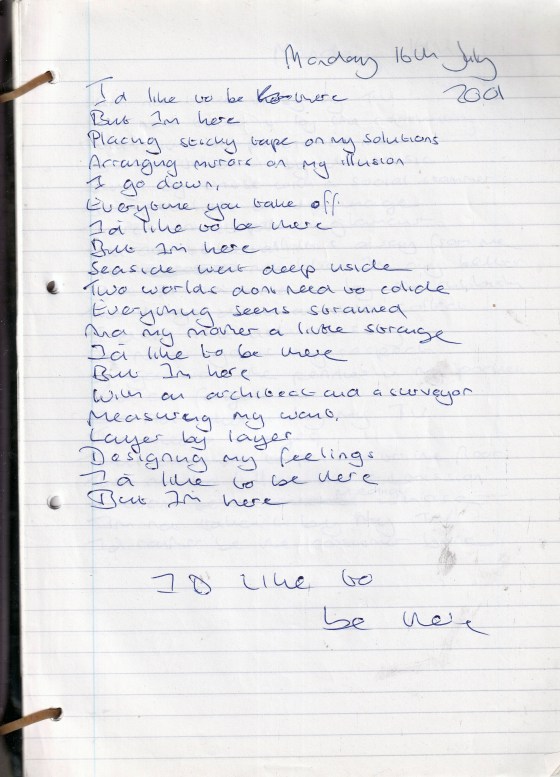 Monday 16th July
2001
I'd like to be there
But I'm here
Placing sticky tape on my solutions
Arranging mirrors on my illusion
I go down,
Everytime you take off
I'd like to be there
But I'm here
Seaside went deep inside
Two worlds dont need to colide
Everything seems strained
And my mother a little strange
I'd like to be there
But I'm here
With an architect and a surveyor
Measuring my want,
Layer by layer
Designing my feelings
I'd like to be there
But I'm here
I'D like to
be there